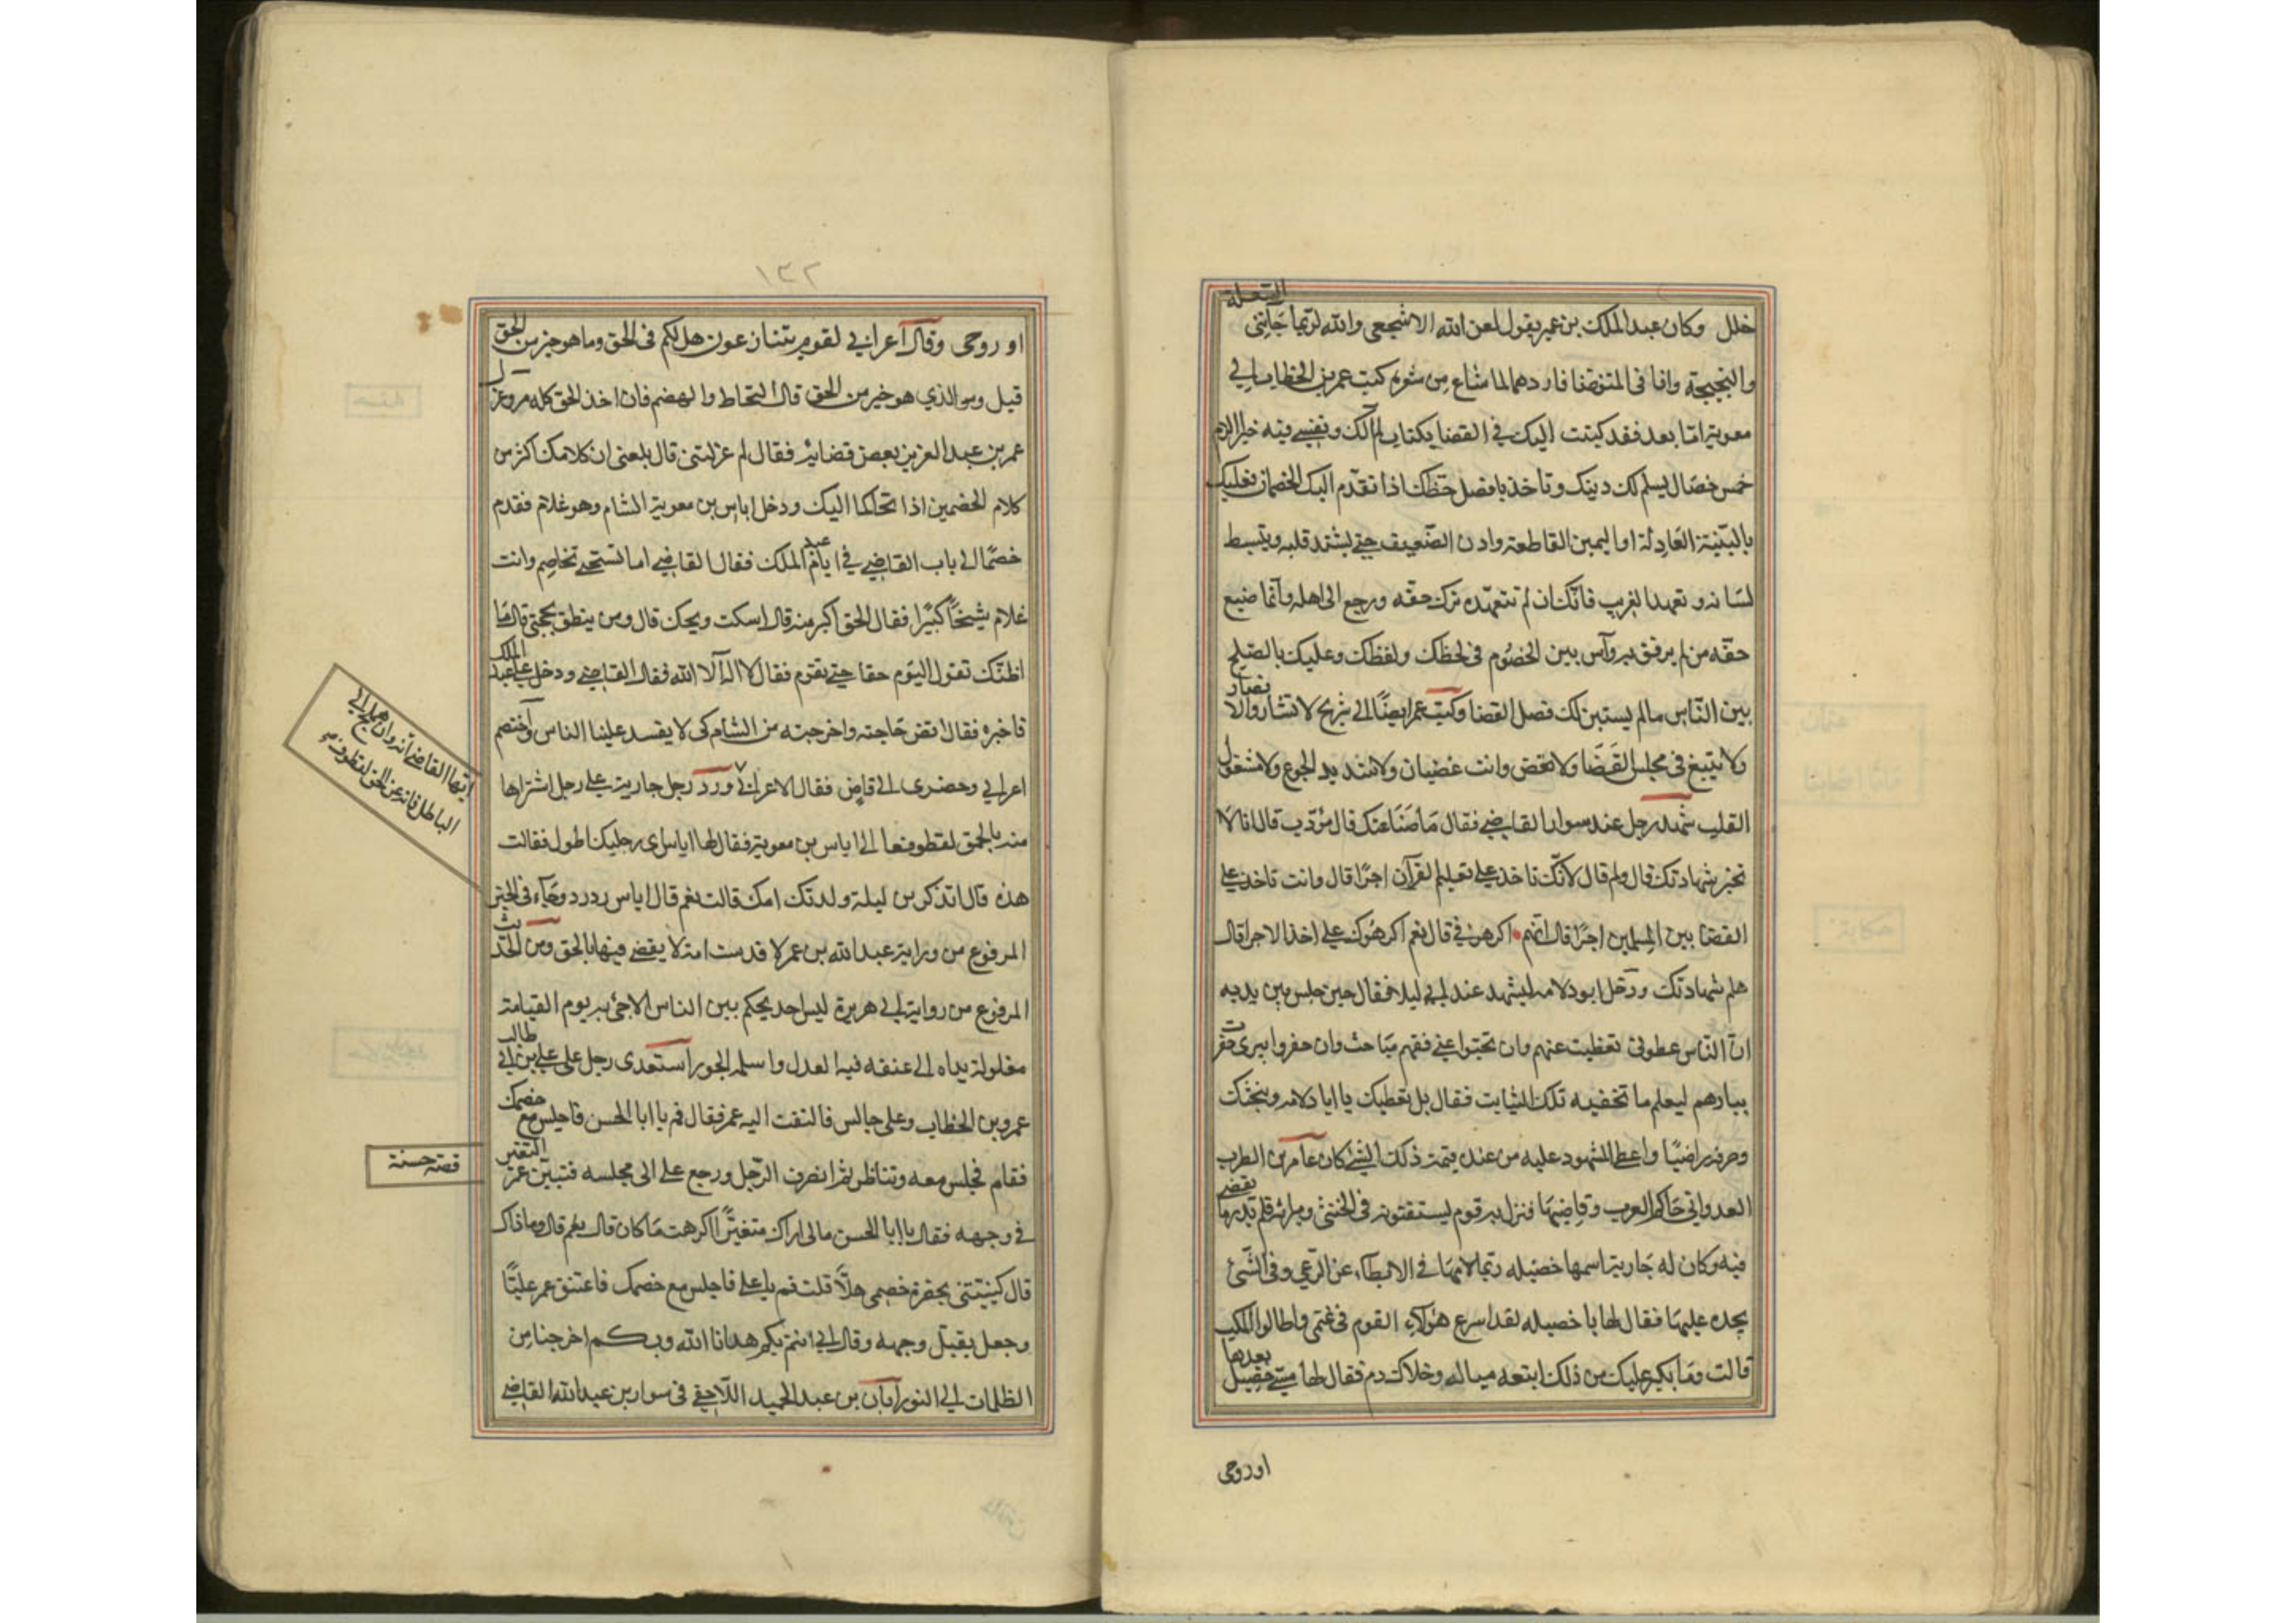 خلل وكان عبد الملك بن عمير يقول لعن الله الاشجعي والله لربما جآئتني السعلة
والنحنحة وانا في المتوضا فاردهما لما شاع من شعره كتب عمر بن الخطاب الي
معوية اما بعد فقد كتبت اليك في القضا بكتاب لم آلك ونفسي فيه خيرا الزم
خمس خصال يسلم لك دينك وتاخذ بافضل حظك اذا تقدم اليك الخصمان فعليك
بالبينة العادلة او اليمين القاطعة وادن الضعيف حتي يشتد قلبه وينبسط
لسانه وتعهد الغريب فانك ان لم تتعهده ترك حقه ورجع الى اهله وانما ضيع
حقه من لم يرفق به وآس بين الخصوم في لحظك ولفظك وعليك بالصلح
بين الناس مالم يستبن لك فصل القضا وكتب عمر ايضًا الي شريح لا تشار ولا تضار
ولا تبتغ في مجلس القضا ولا تقض وانت غضبان ولا شديد الجوع ولا مشغول
القلب شهد رجل عند سوار القاضي فقال ما صناعتك قال مؤدب قال انا لا
نجيز شهادتك قال ولم قال لانك تاخذ علي تعليم القرآن اجرًا قال وانت تاخذ علي
القضا بين المسلمين اجرًا قال انهم اكرهوني قال نعم اكرهوك علي اخذ الاجر قال
هلم شهادتك ودخل ابو دلامه ليشهد عند ابي ليلا فقال حين جلس بين يديه
ان الناس غطوني تغطيت عنهم وان بحثوا عني ففيهم مباحث وان حفروا بيري حفرت
بيارهم ليعلم ما تخفيه تلك النبايث فقال بل نغطيك يا ابا دلامه ونبحثك
وصرفه راضيًا واعطى المشهود عليه من عنده قيمة ذلك الشئ كان عامر بن الظرب
العدواني حاكم العرب وقاضيها فنزل به قوم يستفتونه في الخنثى وميراثه فلم يدر ما يقضي
فيه وكان له جارية اسمها خصيله ربما لامها في الابطاء عن الرعي وفي الشئ
يجده عليها فقال لها يا خصيله لقد اسرع هؤلاء القوم في غنمي واطالوا المكث
قالت وما يكبر عليك من ذلك اتبعه مباله وخلاك ذم فقال لها مسي خصيل بعدها
او روحى
١٣٢
او روحى وقال آعرابي لقوم يتنازعون هل لكم في الحق وما هو خير من الحق
قيل وما الذي هو خير من الحق قال التحاط والهضم فان اخذ الحق كله مر وعزل
عمر بن عبد العزيز بعض قضاته فقال لم عزلتني قال بلغني ان كلامك اكثر من
كلام الخصمين اذا تحاكما اليك ودخل اياس بن معوية الشام وهو غلام فقدم
خصمًا الى باب القاضي في ايام عبد الملك فقال القاضي اما تستحي تخاصم وانت
غلام شيخًا كبيرًا فقال الحق اكبر منه قال اسكت ويحك قال ومن ينطق بحجتي قال ما
اظنك تقول اليوم حقا حتي تقوم فقال لا اله الا الله فقال القاضي ودخل علي عبد الملك
فاخبره فقال اقض حاجته واخرجه من الشام كى لا يفسد علينا الناس واختصم
اعرابي وحضرى الى قاض فقال الاعرابي ورد رجل جارية علي رجل اشتراها
منه بالحمق الى اياس بن معوية فقال لها اياس اى رجليك اطول فقالت
هذه قال اتذكرين ليلة ولدتك امك قالت نعم قال اياس رد رد وجآء في الخبر
المرفوع من رواية عبد الله بن عمر لا قدست امة لا يقضي فيها بالحق ومن الحديث
المرفوع من رواية ابي هريرة ليس احد يحكم بين الناس الا جئ به يوم القيامة
مغلولة يداه الى عنقه فيه العدل واسلمه الجور استعدى رجل على علي بن ابي طالب
عمر بن الخطاب وعلى جالس فالتفت اليه عمر فقال قم يا ابا الحسن فاجلس مع خصمك
فقام فجلس معه وتناظرا ثم انصرف الرجل ورجع علي الى مجلسه فتبين عمر التغير
في وجهه فقال يا ابا الحسن مالى اراك متغيرًا اكرهت ما كان قال نعم قال وما ذاك
قال كنيتني بحضرة خصمي هلا قلت قم يا علي فاجلس مع خصمك فاعتنق عمر عليًا
وجعل يقبل وجهه وقال بابي انتم بكم هدانا الله وبكم اخرجنا من
الظلمات الي النور ابان بن عبد الحميد اللاحقي في سوار بن عبد الله القاضي
ايها القاضي انه وان هملج الي
الباطل فانه عن الحق لقطوف
قصة حسنة